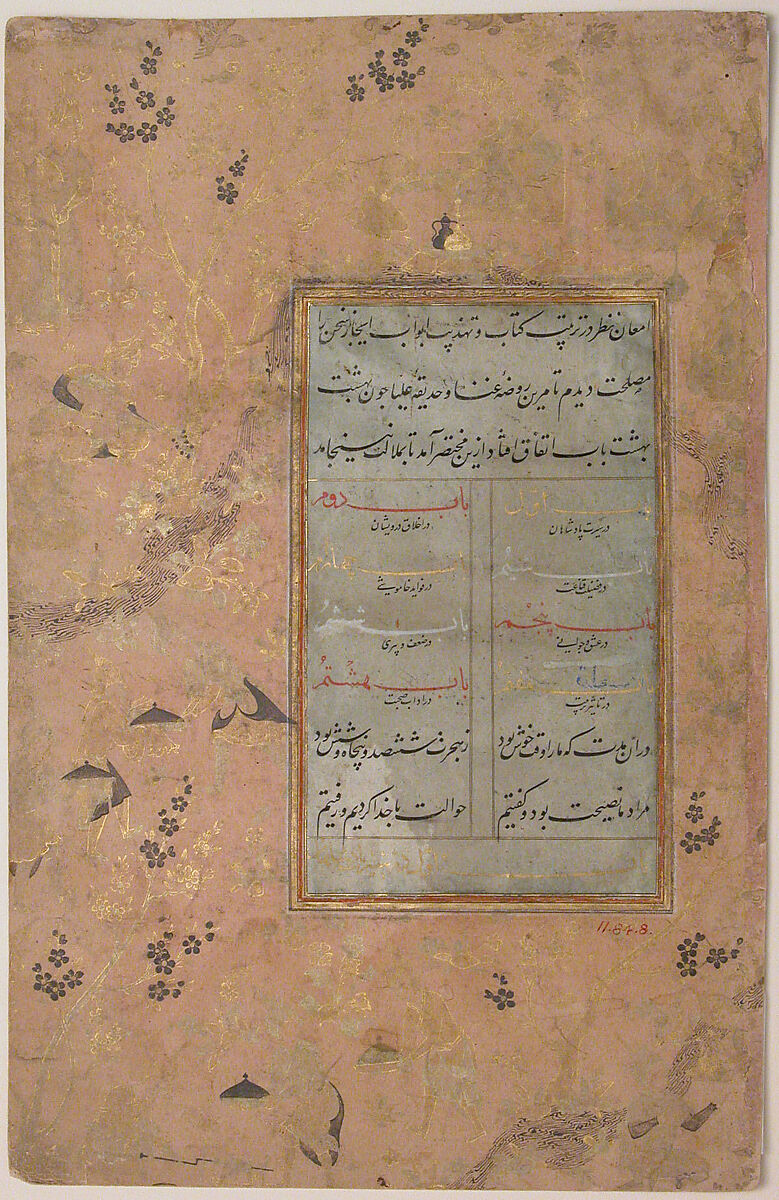 امعان نظر در ترتیب کتاب و تهذیب ابواب ایجاز سخن را
مصلحت دیدم تا مر این روضهٔ غنا و حدیقهٔ علیا چون بهشت
بهشت باب اتفاق افتاد ازین مختصر آمد تا بملالت نینجامد
باب اول
در سیرت پادشاهان
باب دوم
در اخلاق درویشان
باب سیم
در فضیلت قناعت
باب چهارم
در فواید خاموشی
باب پنجم
در عشق و جوانی
باب ششم
در ضعف و پیری
باب
در تاثیر تربیت
باب هشتم
در اداب صحبت
دران مدت که ما را وقت خوش بود
ز هجرت ششصد و پنجاه و شش بود
مراد ما نصیحت بود و گفتیم
حوالت با خدا کردیم و رفتیم
11.84.8.